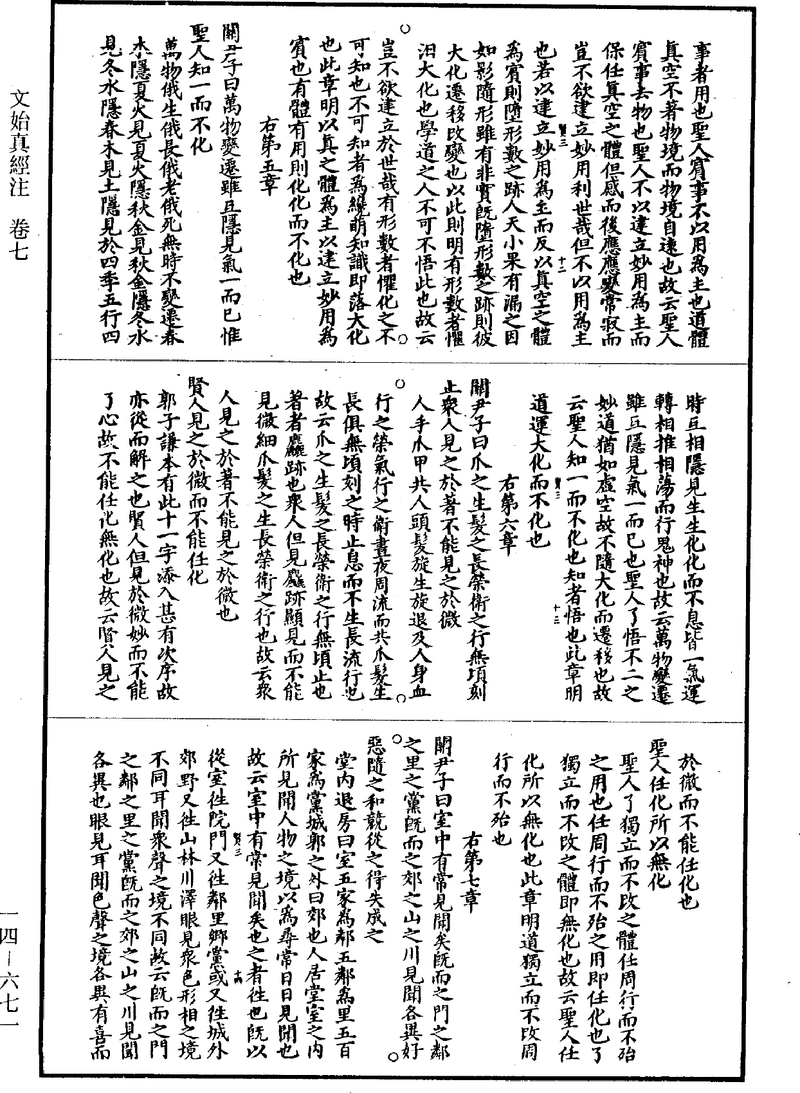 事者用也聖人賓事不以用為主也道體
真空不著物境而物境自遠也故云聖人
賓事去物也聖人不以建立妙用為主而
保任真空之體但感而後應應變常寂而
豈不欲建立妙用利世哉但不以用為主
也若以建立妙用為主而反以真空之體
為賓則墮形數之跡人天小果有漏之因
如影隨形雖有非實既墮形數之跡則彼
大化遷移改變也以此則明有形數者懼
汨大化也學道之人不可不悟此也故云
豈不欲建立於世哉有形數者懼化之不
可知也不可知者為纔萌知識即落大化
也此章明以真之體為主以建立妙用為
賓也有體有用則化化而不化也
右第五章
關尹子曰萬物變遷雖互隱見氣一而已惟
聖人知一而不化
萬物俄生俄長俄老俄死無時不變遷春
木隱夏火見夏火隱秋金見秋金隱冬水
見冬水隱春木見土隱見於四季五行四
時互相隱見生生化化而不息皆一氣運
轉相推相蕩而行鬼神也故云萬物變遷
雖互隱見氣一而已也聖人了悟不二之
妙道猶如虛空故不隨大化而遷移也故
云聖人知一而不化也知者悟也此章明
道運大化而不化也
右第六章
關尹子曰爪之生髮之長榮衛之行無頃刻
止衆人見之於著不能見之於微
人手爪甲共人頭髮旋生旋退及人身血
行之榮氣行之衛晝夜周流而共爪髮生
長俱無頃刻之時止息而不生長流行也
故云爪之生髮之長榮衛之行無頃止也
著者麤跡也衆人但見麤跡顯見而不能
見微細爪髮之生長榮衛之行也故云衆
人見之於著不能見之於微也
賢人見之於微而不能任化
郭子謙本有此十一字添入甚有次序故
亦從而解之也賢人但見於微妙而不能
了心故不能任化無化也故云賢人見之
於微而不能任化也
聖人任化所以無化
聖人了獨立而不改之體任周行而不殆
之用也任周行而不殆之用即任化也了
獨立而不改之體即無化也故云聖人任
化所以無化也此章明道獨立而不改周
行而不殆也
右第七章
關尹子曰室中有常見聞矣既而之門之鄰
之里之黨既而之郊之山之川見聞各異好
惡隨之和競從之得失成之
堂內退房曰室五家為鄰五鄰為里五百
家為黨城郭之外曰郊也人居堂室之內
所見聞人物之境以為尋常日日見聞也
故云室中有常見聞矣也之者往也既以
從室往院門又往鄰里鄉黨或又往城外
郊野又往山林川澤眼見衆色形相之境
不同耳聞衆聲之境不同故云既而之門
之鄰之里之黨既而之郊之山之川見聞
各異也眼見耳聞色聲之境各異有喜而
文始真經注 卷七
一四—六七一